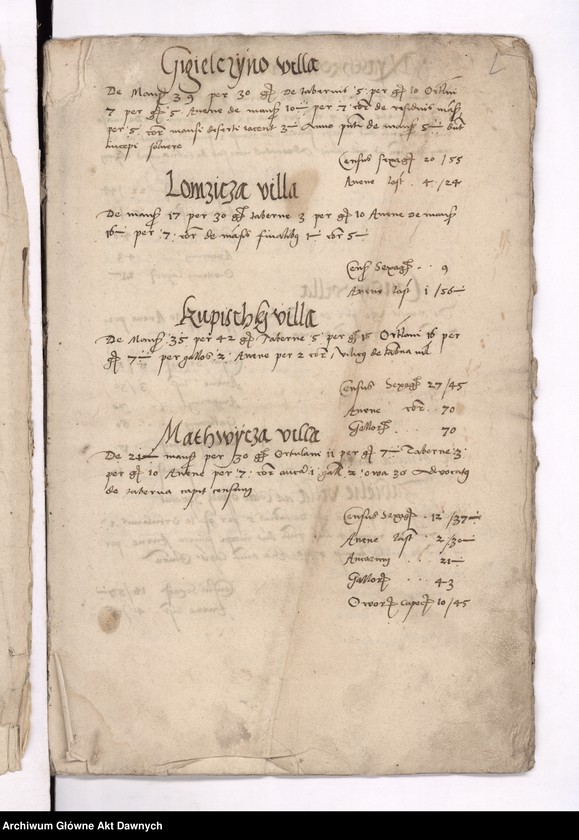 Gigielczyno villa
De Mans 39 per 30 gr De tabernis 5 per gr 10 Ortulani
7 per gr 5 Avene de mans 10 per 7 cor de residuis mans
per 5 cor mansi deserti iacent 3 Anno de mans 5
incepi solvere
Census sexag 20 / 55
Avene last 4 / 24
Lomzicza villa
De mans 17 per 30 gr taberne 3 per gr 10 Avene de mans
16 per 7 cor de 1 cor 5
Cens Sexag 9
Avene last 1 / 56
Kupischky villa
De Mans 35 per 42 gr Taberne 5 per gr 15 Ortulani 16 per
gr 7 per gallos 2 Avene per 2 cor de
Census Sexag 27 / 45
Avene cor 70
Gallor 70
Mathwycza villa
De 21 mans per 30 gr Ortulani 11 per gr 7 Taberne 3
per gr 10 Avene per 7 cor 1 gall 2 owa 30 Advocatus
de taberna capit censum
Census Sexag 12 / 37
Avene last 2 / 30
21
Gallor 43
Oworum capet 10 / 45
Archiwum Główne Akt Dawnych